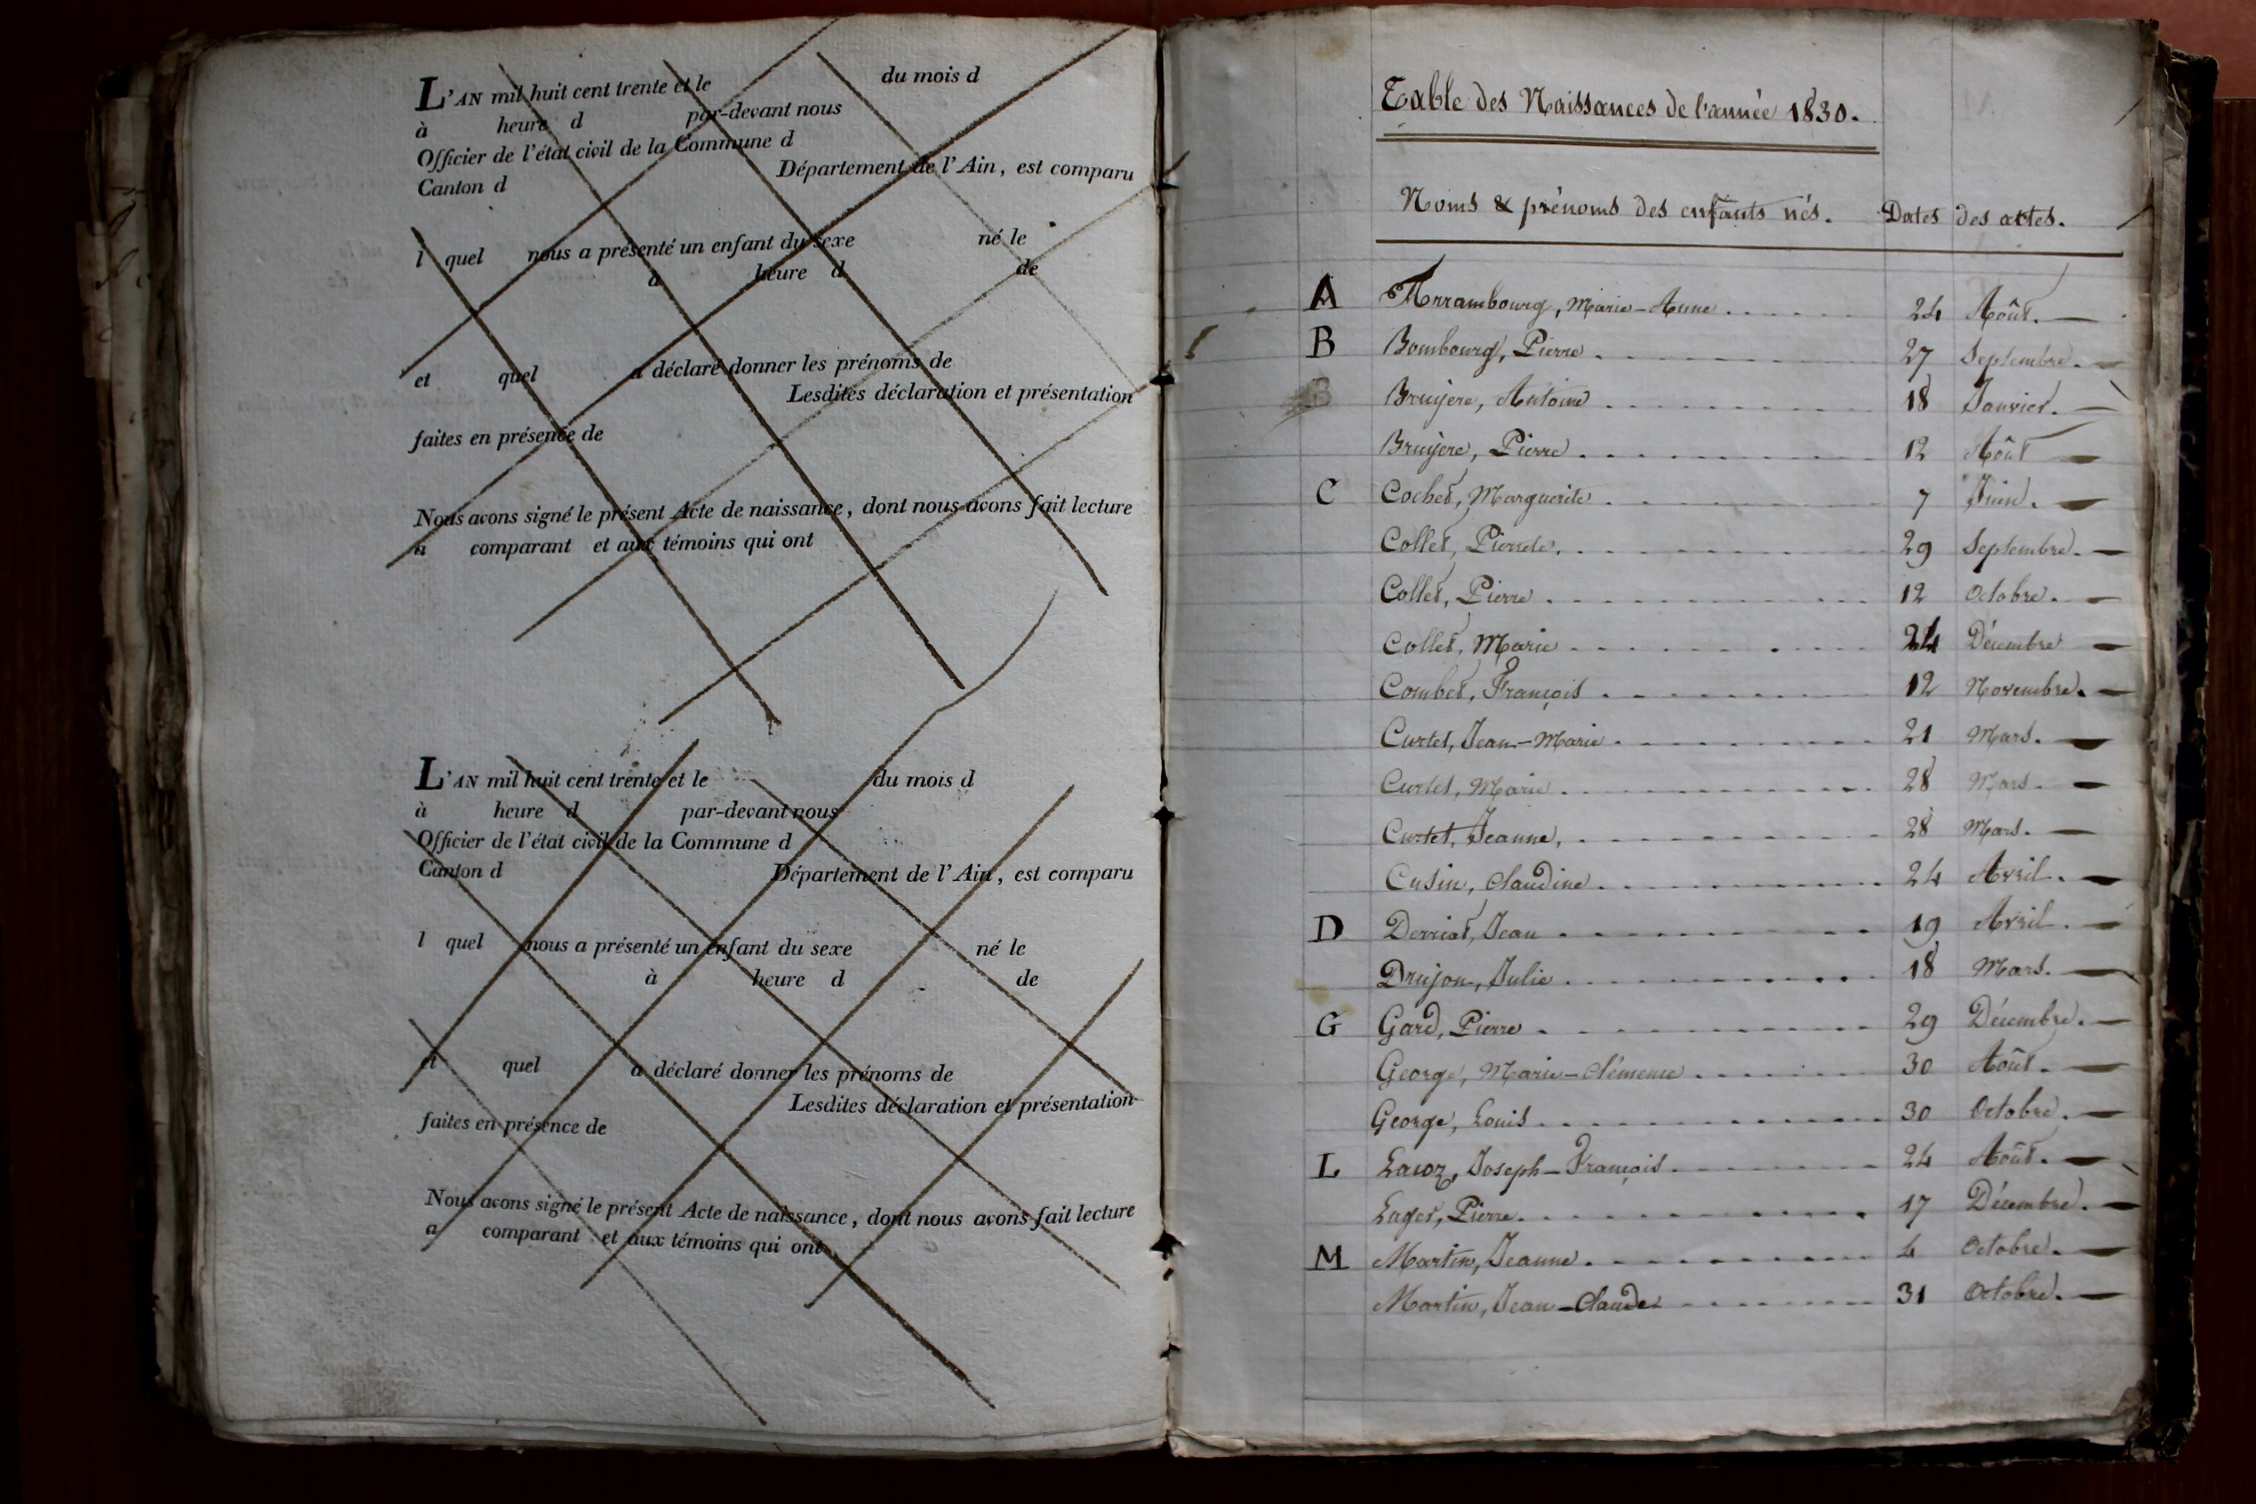 L'AN mil huit cent trente et le du mois d
à heure d par-devant nous
Officier de l'état civil de la Commune d
Canton d Département de l'Ain, est comparu
l quel nous a présenté un enfant du sexe né le
à heure d de
et quel a déclaré donner les prénoms de
Lesdites déclaration et présentation
faites en présence de
Nous avons signé le présent Acte de naissance, dont nous avons fait lecture
a comparant et aux témoins qui ont
L'AN mil huit cent trente et le du mois d
à heure d par-devant nous
Officier de l'état civil de la Commune d
Canton d Département de l'Ain, est comparu
l quel nous a présenté un enfant du sexe né le
à heure d de
et quel a déclaré donner les prénoms de
Lesdites déclaration et présentation
faites en présence de
Nous avons signé le présent Acte de naissance, dont nous avons fait lecture
a comparant et aux témoins qui ont
Table des Naissances de l'année 1830.
Noms & prénoms des enfants nés. Dates des actes.
A Arrambourg, Marie-Anne 24 Août.
B Bombourg, Pierre 27 Septembre.
Bruyère, Antoine 18 Janvier.
Bruyère, Pierre 12 Août
C Cochet, Marguerite 7 Juin.
Collet, Pierrete. 29 Septembre.
Collet, Pierre 12 Octobre.
Collet, Marie 24 Décembre
Combet, François 12 Novembre.
Curtet, Jean-Marie 21 Mars.
Curtet, Marie 28 Mars.
Curtet, Jeanne, 28 Mars.
Cusin, Claudine 24 Avril.
D Derriat, Jean 19 Avril.
Drujon, Julie 18 Mars.
G Gard, Pierre 29 Décembre.
George, Marie-Clémence 30 Août.
George, Louis 30 Octobre.
L Lacoz, Joseph-François 24 Août.
Lager, Pierre 17 Décembre.
M Martin, Jeanne 4 Octobre.
Martin, Jean-Claude 31 Octobre.